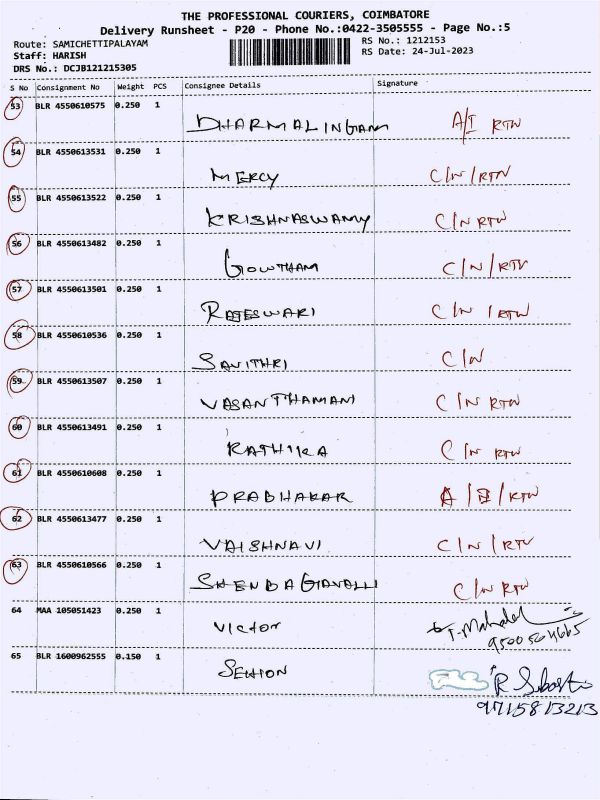 THE PROFESSIONAL COURIERS, COIMBATORE
Delivery Runsheet - P20 - Phone No.:0422-3505555 - Page No.:5
Route: SAMICHETTIPALAYAM RS No.: 1212153
Staff: HARISH RS Date: 24-Jul-2023
DRS No.: DCJB121215305
S No Consignment No Weight PCS Consignee Details Signature
53 BLR 4550610575 0.250 1
DHARMALINGAM A/I RTN
54 BLR 4550613531 0.250 1
MERCY C/N/RTN
55 BLR 4550613522 0.250 1
KRISHNASWAMY C/N RTN
56 BLR 4550613482 0.250 1
GOWTHAM C/N/RTN
57 BLR 4550613501 0.250 1
RAJESWARI C/N/RTN
58 BLR 4550610536 0.250 1
SAVITHRI C/N
59 BLR 4550613507 0.250 1
VASANTHAMANI C/N RTN
60 BLR 4550613491 0.250 1
RATHIKA C/N RTN
61 BLR 4550610608 0.250 1
PRABHAKAR A/I/RTN
62 BLR 4550613477 0.250 1
VAISHNAVI C/N/RTN
63 BLR 4550610566 0.250 1
C/N RTN
64 MAA 105051423 0.250 1
VICTOR
65 BLR 1600962555 0.150 1
9715813213